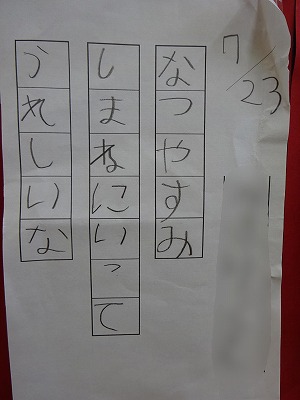 7/23
なつやすみ
しまねにいって
うれしいな